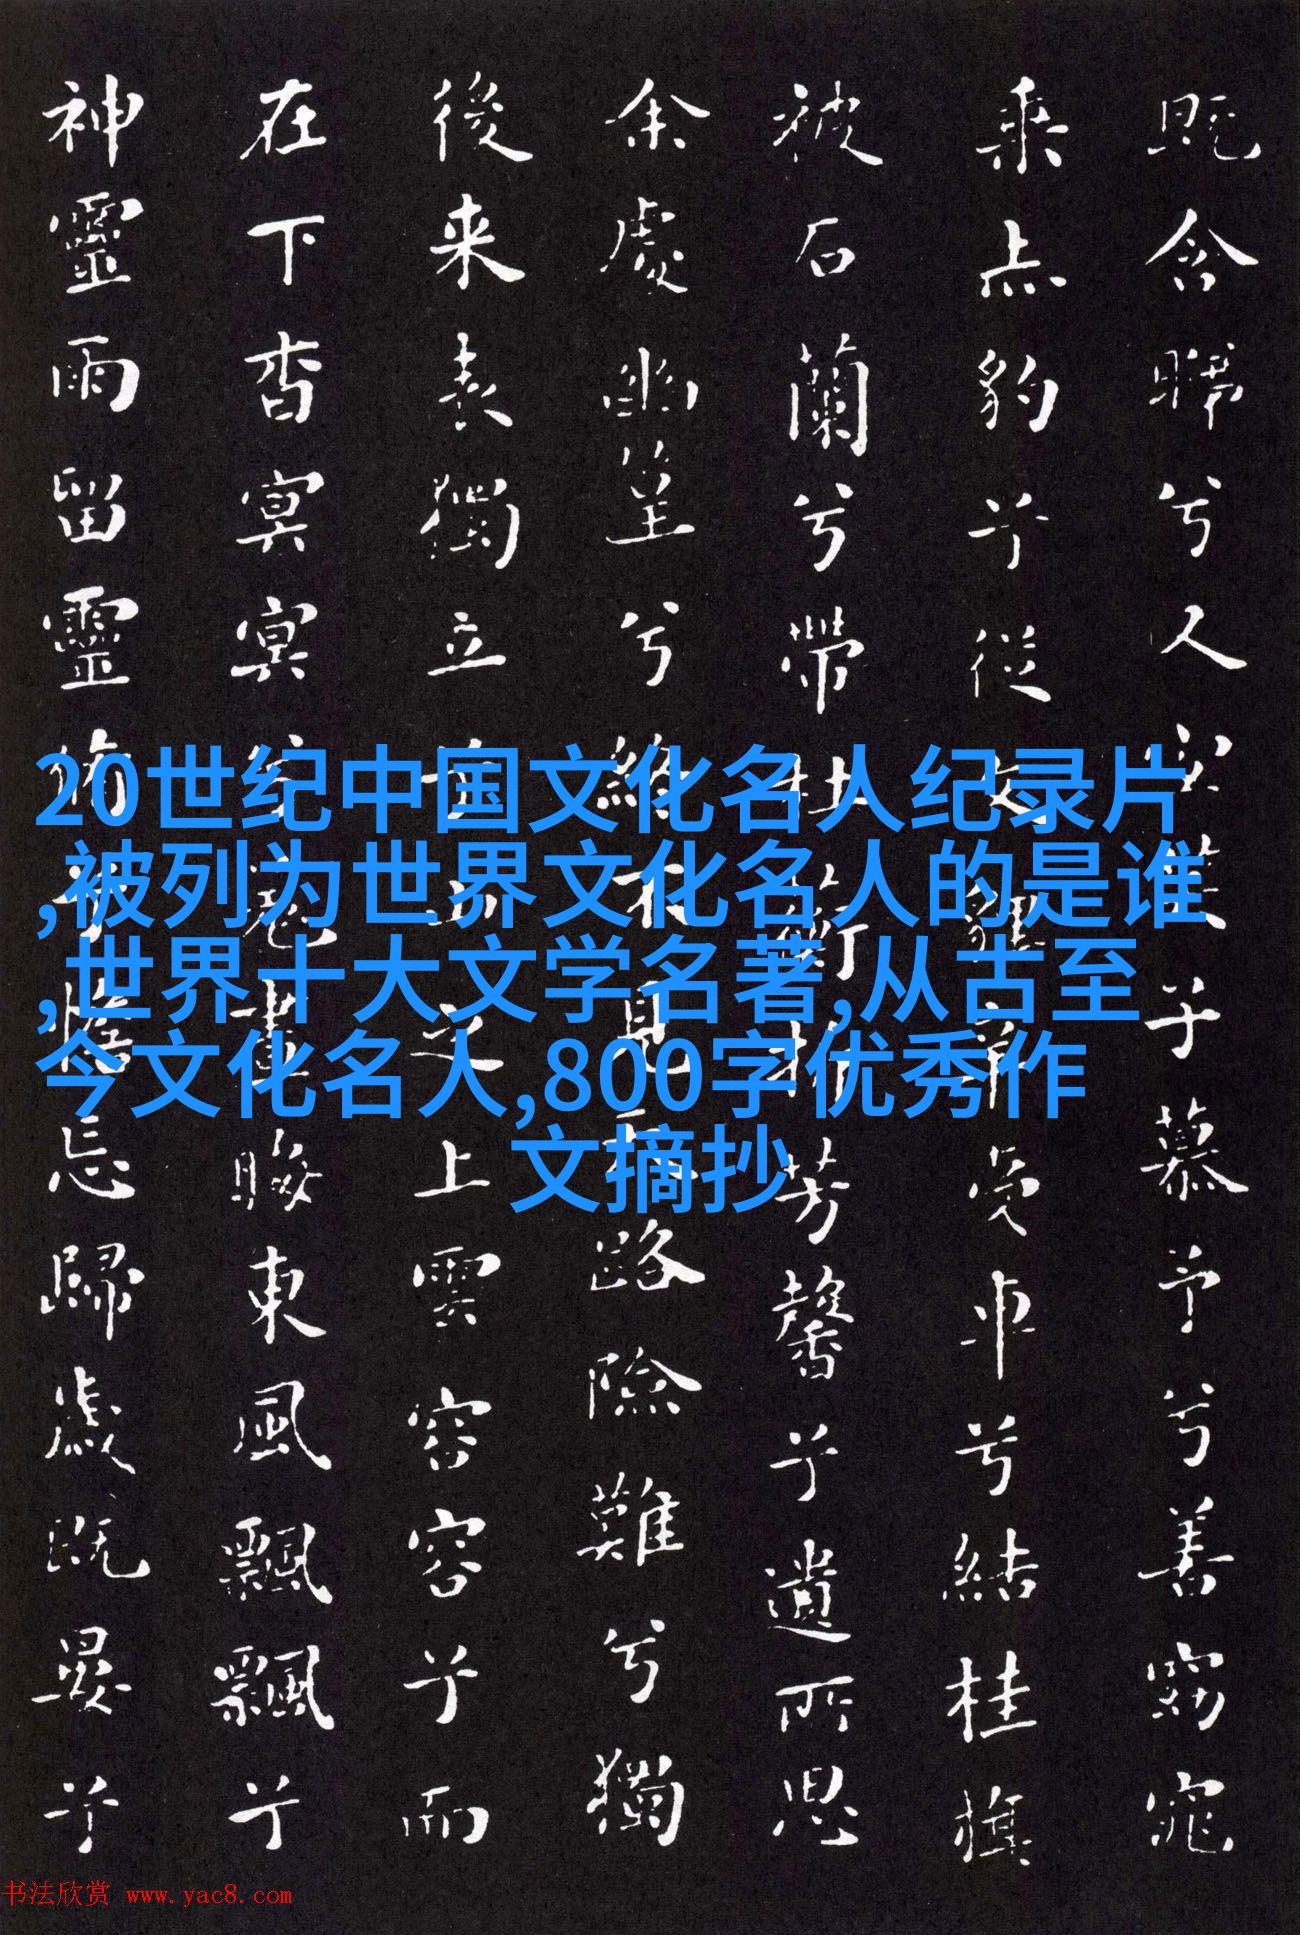 既含睇兮又宜笑子慕予兮善窈窕
乘赤豹兮從文貍辛夷車兮結桂旗
被石蘭兮帶杜蘅折芳馨兮遺所思
余處幽篁兮終不見天路險難兮獨
後來表獨立山之上雲容容兮而
在下杳冥冥兮羌晝晦東風飄飄兮
神靈雨留靈脩兮憺忘歸歲既晏兮
20世纪中国文化名人纪录片
,被列为世界文化名人的是谁
,世界十大文学名著,从古至
今文化名人,800字优秀作
文摘抄
书法欣赏 www.yac8.com